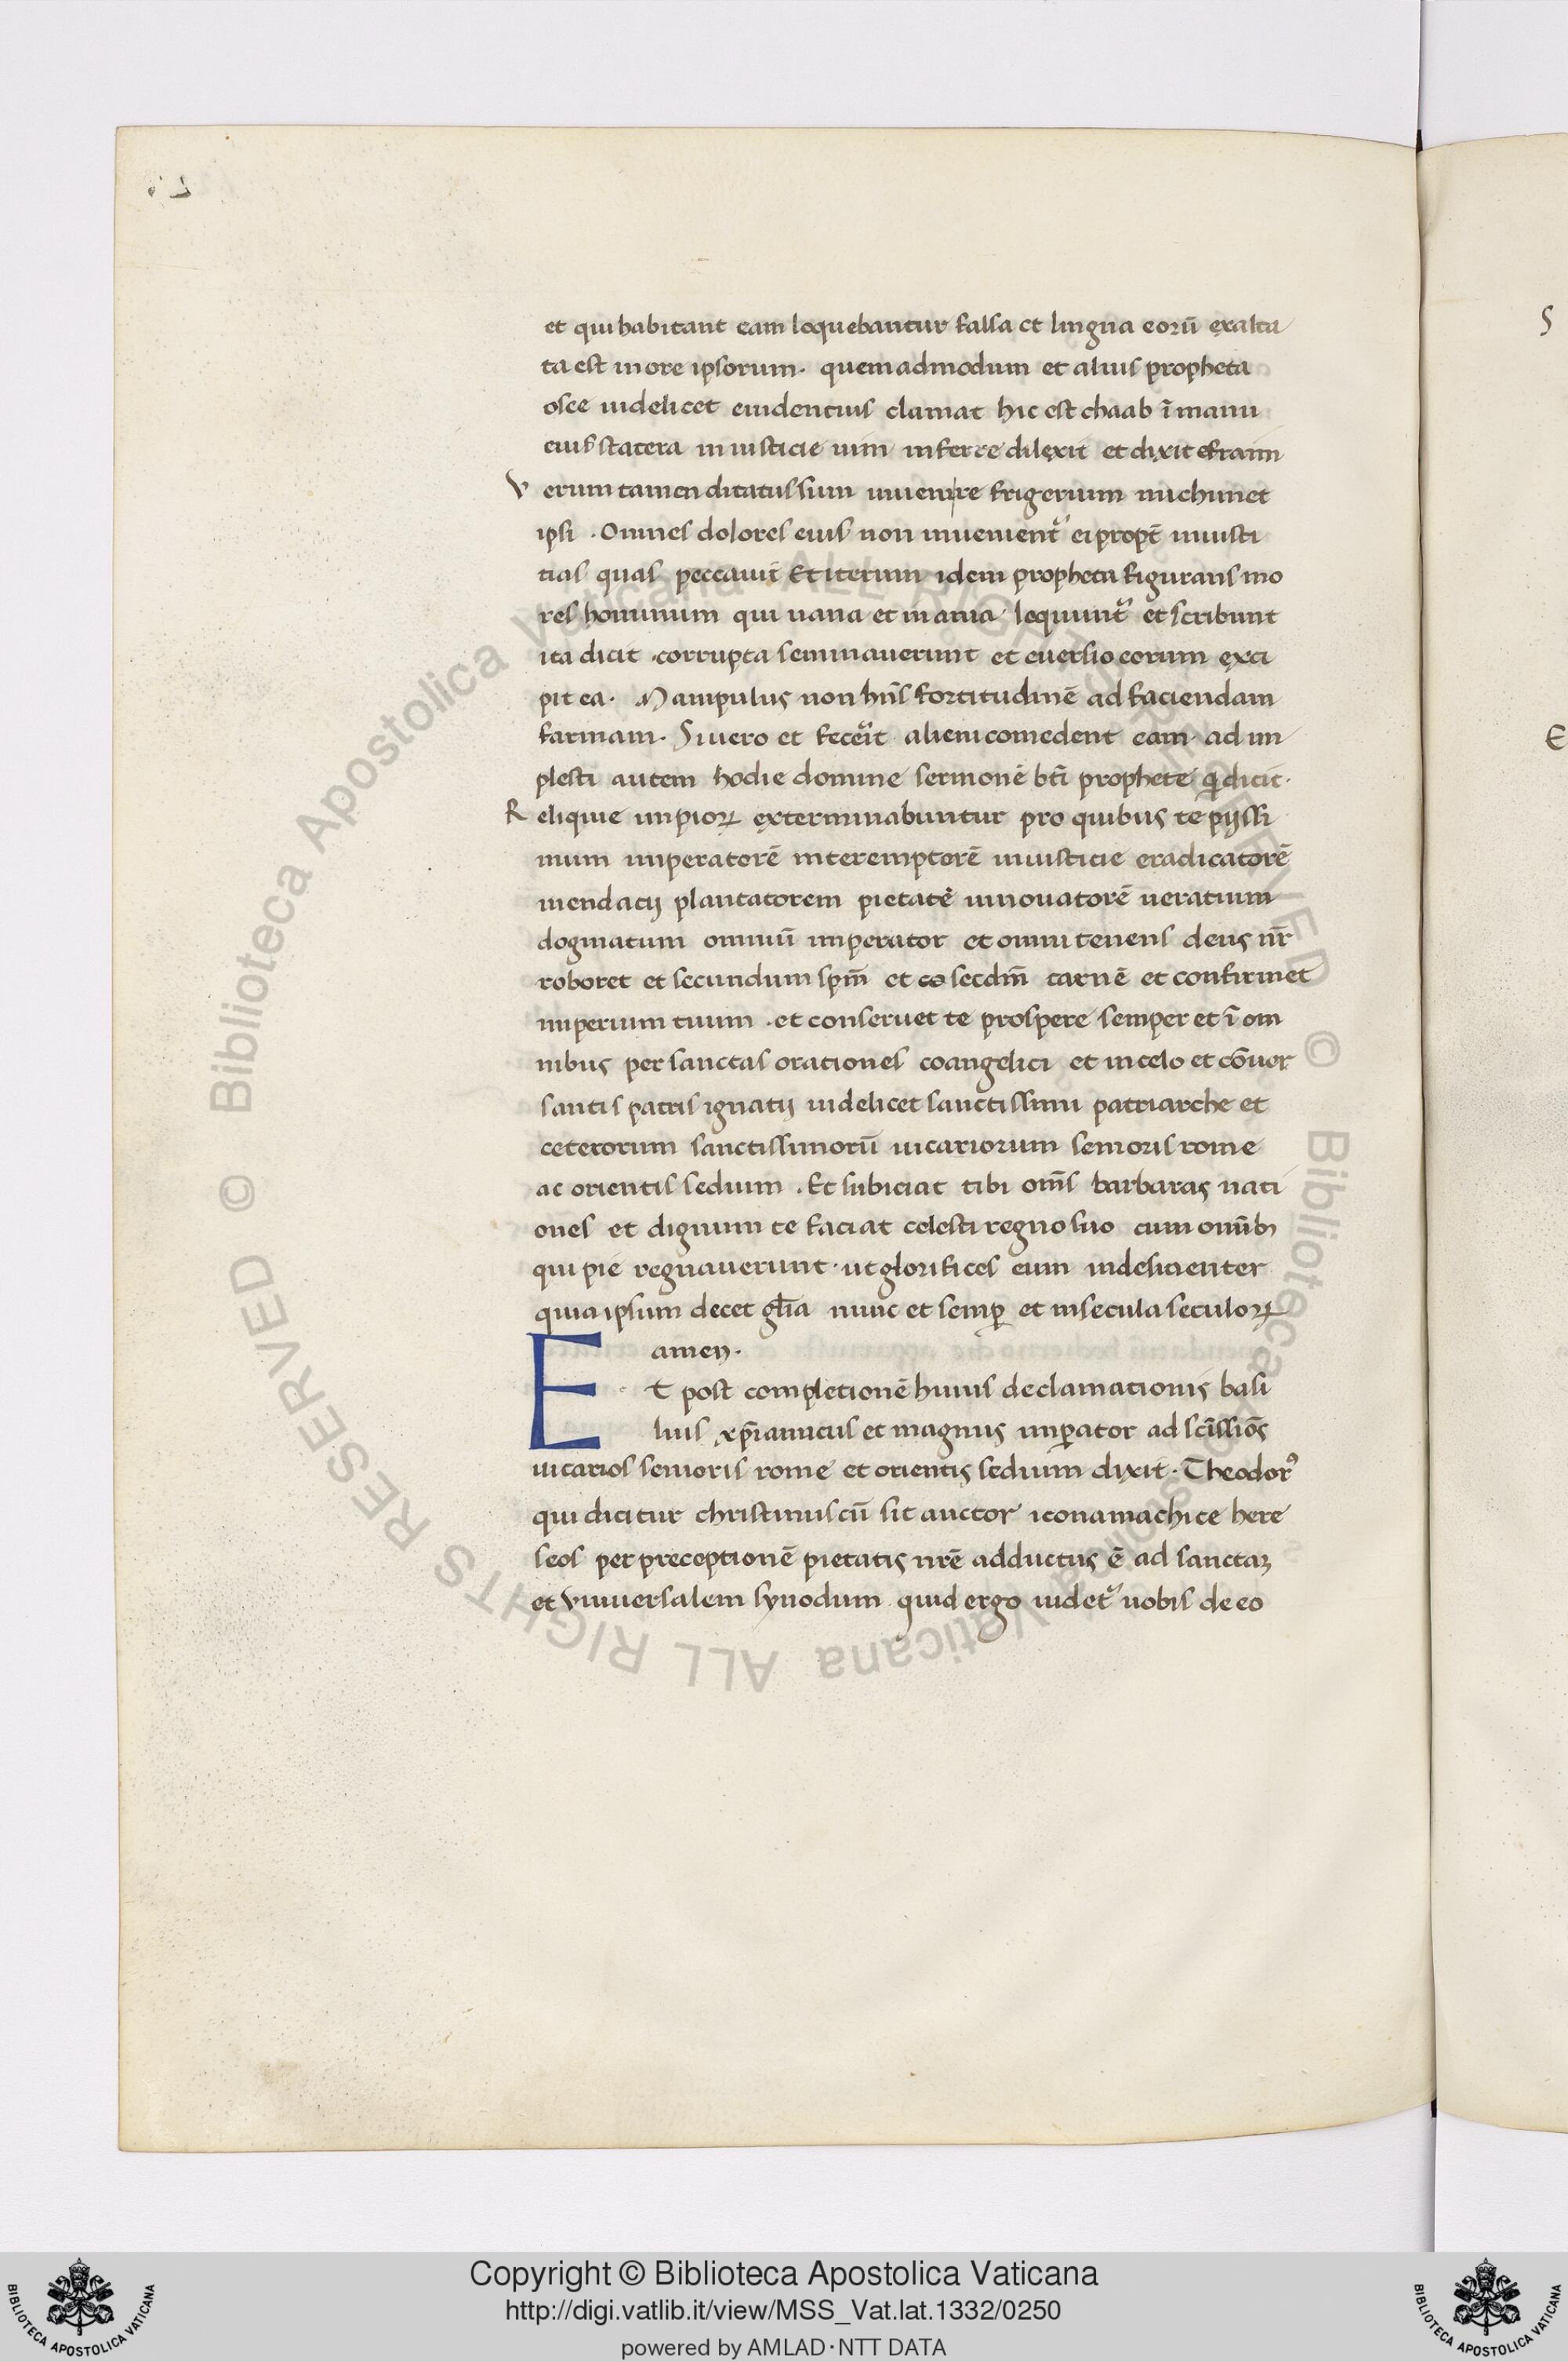 et qui habitant eam loquebantur falsa et lingua eorū exalta
ta est in ore ipsorum. quemadmodum et alius propheta
osee uidelicet euidentius clamat hic est chaab ī manu
eius statera iniusticie uim inferre dilexit et dixit efraim
V erum tamen ditatus sum inuenire frigerium michimet
ipsi . Omnes dolores eius non inuenient᷑ ei propt̄ iniusti
tias quas peccauit Et iterum idem propheta figurans mo
res hominum qui uana et inania loquunt᷑ et scribunt
ita dicit .corrupta seminauerunt et euersio eorum exci
pit ea. Manipulus non hn̄s fortitudinē ad faciendam
farinam. Si uero et fecer̄it alieni comedent eam. ad im
plesti autem hodie domine sermonē bt̄i prophete q̄ dicit.
R eliquie impioꝝ exterminabuntur pro quibus te pijssi
mum imperatorē interemptorē iniusticie eradicatorē
mendacij plantatorem pietatē innouatorē ueratium
dogmatum omniū imperator et omnitenens deus nr̄
roboret et secundum sp̄m et eo secdm̄ carnē et confirmet
imperium tuum .et conseruet te prospere semper et ī om
nibus per sanctas orationes coangelici et in celo et cōuer
santis patris ignatij uidelicet sanctissimi patriarche et
ceterorum sanctissimorū uicariorum senioris rome
ac orientis sedium . Et subiciat tibi om̄s barbaras nati
ones et dignum te faciat celesti regno suo cum omīb;
qui pie regnauerunt. ut glorifices eum indeficienter
quia ipsum decet gl̄ia nunc et semꝑ et in secula seculoꝝ
amen.
E t post completionē huius declamationis basi
lius xp̄ianicus et magnus imꝑator ad sc̄issiōs
uicarios senioris rome et orientis sedium dixit. Theodorꝰ
qui dicitur christinus cū sit auctor iconamachice here
seos per preceptionē pietatis nr̄e adductus ē ad sanctaꝫ
et vniuersalem synodum quid ergo uidet᷑ uobis de eo
S
E
© Biblioteca Apostolica Vaticana ALL RIGHTS RESERVED © Biblioteca Apostolica Vaticana ALL RIGHTS RESERVED
Copyright © Biblioteca Apostolica Vaticana
http://digi.vatlib.it/view/MSS_Vat.lat.1332/0250
powered by AMLAD·NTT DATA
BIBLIOTECA APOSTOLICA VATICANA
BIBLIOTECA APOSTOLICA VATICANA